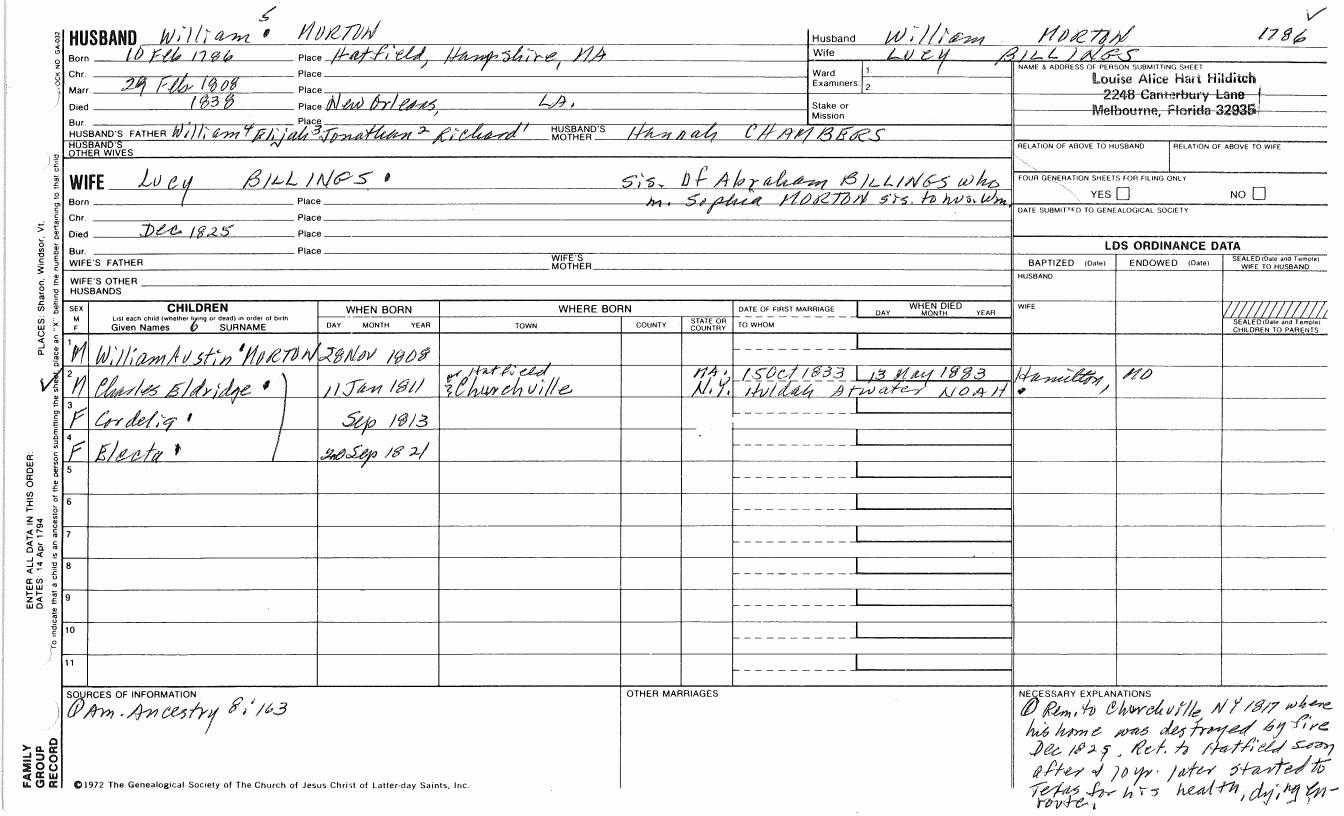 5
HUSBAND William MORTON
Born 10 Feb 1786 Place Hatfield, Hampshire, MA
Chr. Place
Marr 29 Feb 1808 Place
Died 1838 Place New Orleans, LA.
Bur. Place
HUSBAND'S FATHER William⁴ Elijah³ Jonathan² Richard¹ HUSBAND'S MOTHER Hannah CHAMBERS
HUSBAND'S OTHER WIVES
WIFE Lucy BILLINGS sis. of Abraham BILLINGS who
Born Place m. Sophia MORTON sis. to hus. Wm.
Chr. Place
Died Dec 1825 Place
Bur. Place
WIFE'S FATHER WIFE'S MOTHER
WIFE'S OTHER HUSBANDS
Husband William MORTON 1786
Wife LUCY BILLINGS
Ward Examiners 1
2
Stake or Mission
NAME & ADDRESS OF PERSON SUBMITTING SHEET
Louise Alice Hart Hilditch
2248 Canterbury Lane
Melbourne, Florida 32935
RELATION OF ABOVE TO HUSBAND RELATION OF ABOVE TO WIFE
FOUR GENERATION SHEETS FOR FILING ONLY
YES NO
DATE SUBMITTED TO GENEALOGICAL SOCIETY
LDS ORDINANCE DATA
BAPTIZED (Date) ENDOWED (Date) SEALED (Date and Temple) WIFE TO HUSBAND
HUSBAND
WIFE
SEALED (Date and Temple) CHILDREN TO PARENTS
SEX M F
CHILDREN
List each child (whether living or dead) in order of birth
Given Names 6 SURNAME
WHEN BORN
DAY MONTH YEAR
WHERE BORN
TOWN COUNTY STATE OR COUNTRY
DATE OF FIRST MARRIAGE
TO WHOM
WHEN DIED
DAY MONTH YEAR
1 M William Austin MORTON 28 Nov 1808
2 M Charles Eldridge 11 Jan 1811 or Hatfield MA. 15 Oct 1833 13 May 1883 Hamilton, MO
? Churchville N.Y. Huldah Atwater NOAH
3 F Cordelia Sep 1813
4 F Electa Sep 1821
5
6
7
8
9
10
11
SOURCES OF INFORMATION
① Am. Ancestry 8:163
OTHER MARRIAGES
NECESSARY EXPLANATIONS
① Rem. to Churchville, NY 1817 where
his home was destroyed by fire
Dec 1829. Ret. to Hatfield soon
after & 10 yr. later started to
Texas for his health, dying en-
route.
©1972 The Genealogical Society of The Church of Jesus Christ of Latter-day Saints, Inc.
FAMILY
GROUP
RECORD
ENTER ALL DATA IN THIS ORDER:
DATES: 14 Apr 1794 PLACES: Sharon, Windsor, Vt.
To indicate that a child is an ancestor of the person submitting the sheet, place an "X" behind the number pertaining to that child
OCK NO. GA-032